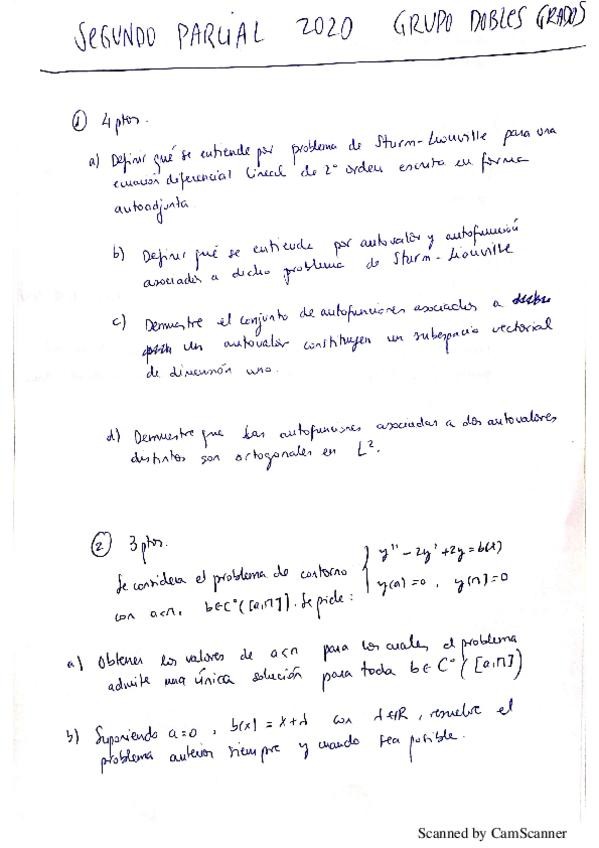 SEGUNDO PARCIAL 2020 GRUPO DOBLES GRADOS
① 4 ptos.
a) Definir qué se entiende por problema de Sturm-Liouville para una
ecuación diferencial lineal de 2º orden escrita en forma
autoadjunta
b) Definir qué se entiende por autovalor y autofunción
asociados a dicho problema de Sturm-Liouville
c) Demuestre el conjunto de autofunciones asociados a
un autovalor constituyen un subespacio vectorial
de dimensión uno.
d) Demuestre que las autofunciones asociadas a dos autovalores
distintos son octogonales en L².
② 3 ptos.
Se considera el problema de contorno { y'' - 2y' + 2y = b(x)
y(a) = 0, y(π) = 0
con a<π, b∈C⁰([a,π]). Se pide:
a) Obtener los valores de a<π para los cuales el problema
admite una única solución para toda b∈C⁰([a,π])
b) Suponiendo a=0, b(x) = x+λ con λ∈ℝ, resuelve el
problema anterior siempre y cuando sea posible.
Scanned by CamScanner